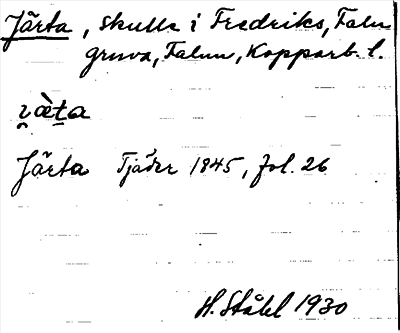 Järta, skulle i Fredriks, Falu
gruva, Falun, Kopparb. l.
Järta Tjäder 1845, fol. 26
H. Ståhl 1930